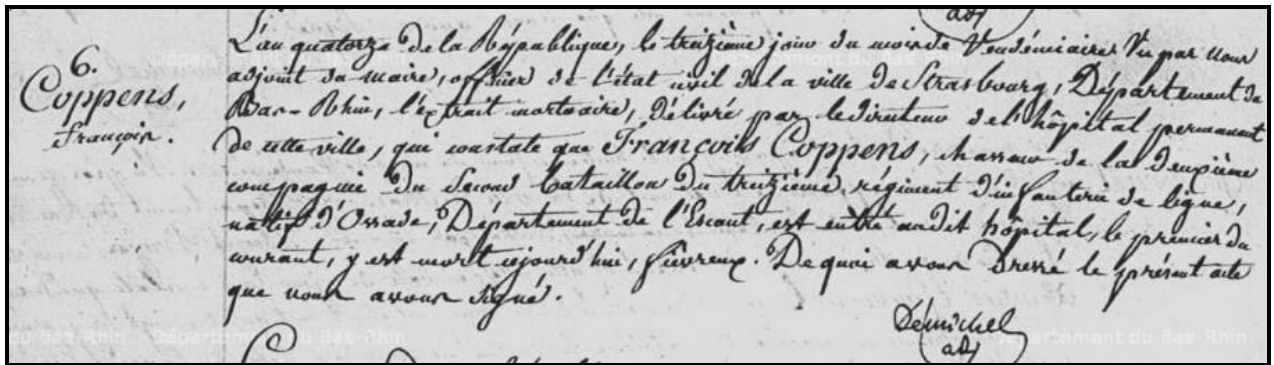 adj
6.
Coppens,
François.
L'an quatorze de la République, le treizième jour du mois de Vendémiaire. Vu par nous
adjoint du maire, officier de l'état civil de la ville de Strasbourg, Département du
Bas-Rhin, l'extrait mortuaire, délivré par le directeur de l'hôpital permanent
de cette ville, qui constate que François Coppens, chasseur de la deuxième
compagnie du second bataillon du treizième régiment d'infanterie de ligne,
natif d'Ossade, Département de l'Escaut, est entré audit hôpital, le premier du
courant, y est mort aujourd'hui, fiévreux. De quoi avons dressé le présent acte
que nous avons signé.
Démichel
adj
du Bas-Rhin Département du Bas-Rhin Département du Bas-Rhin